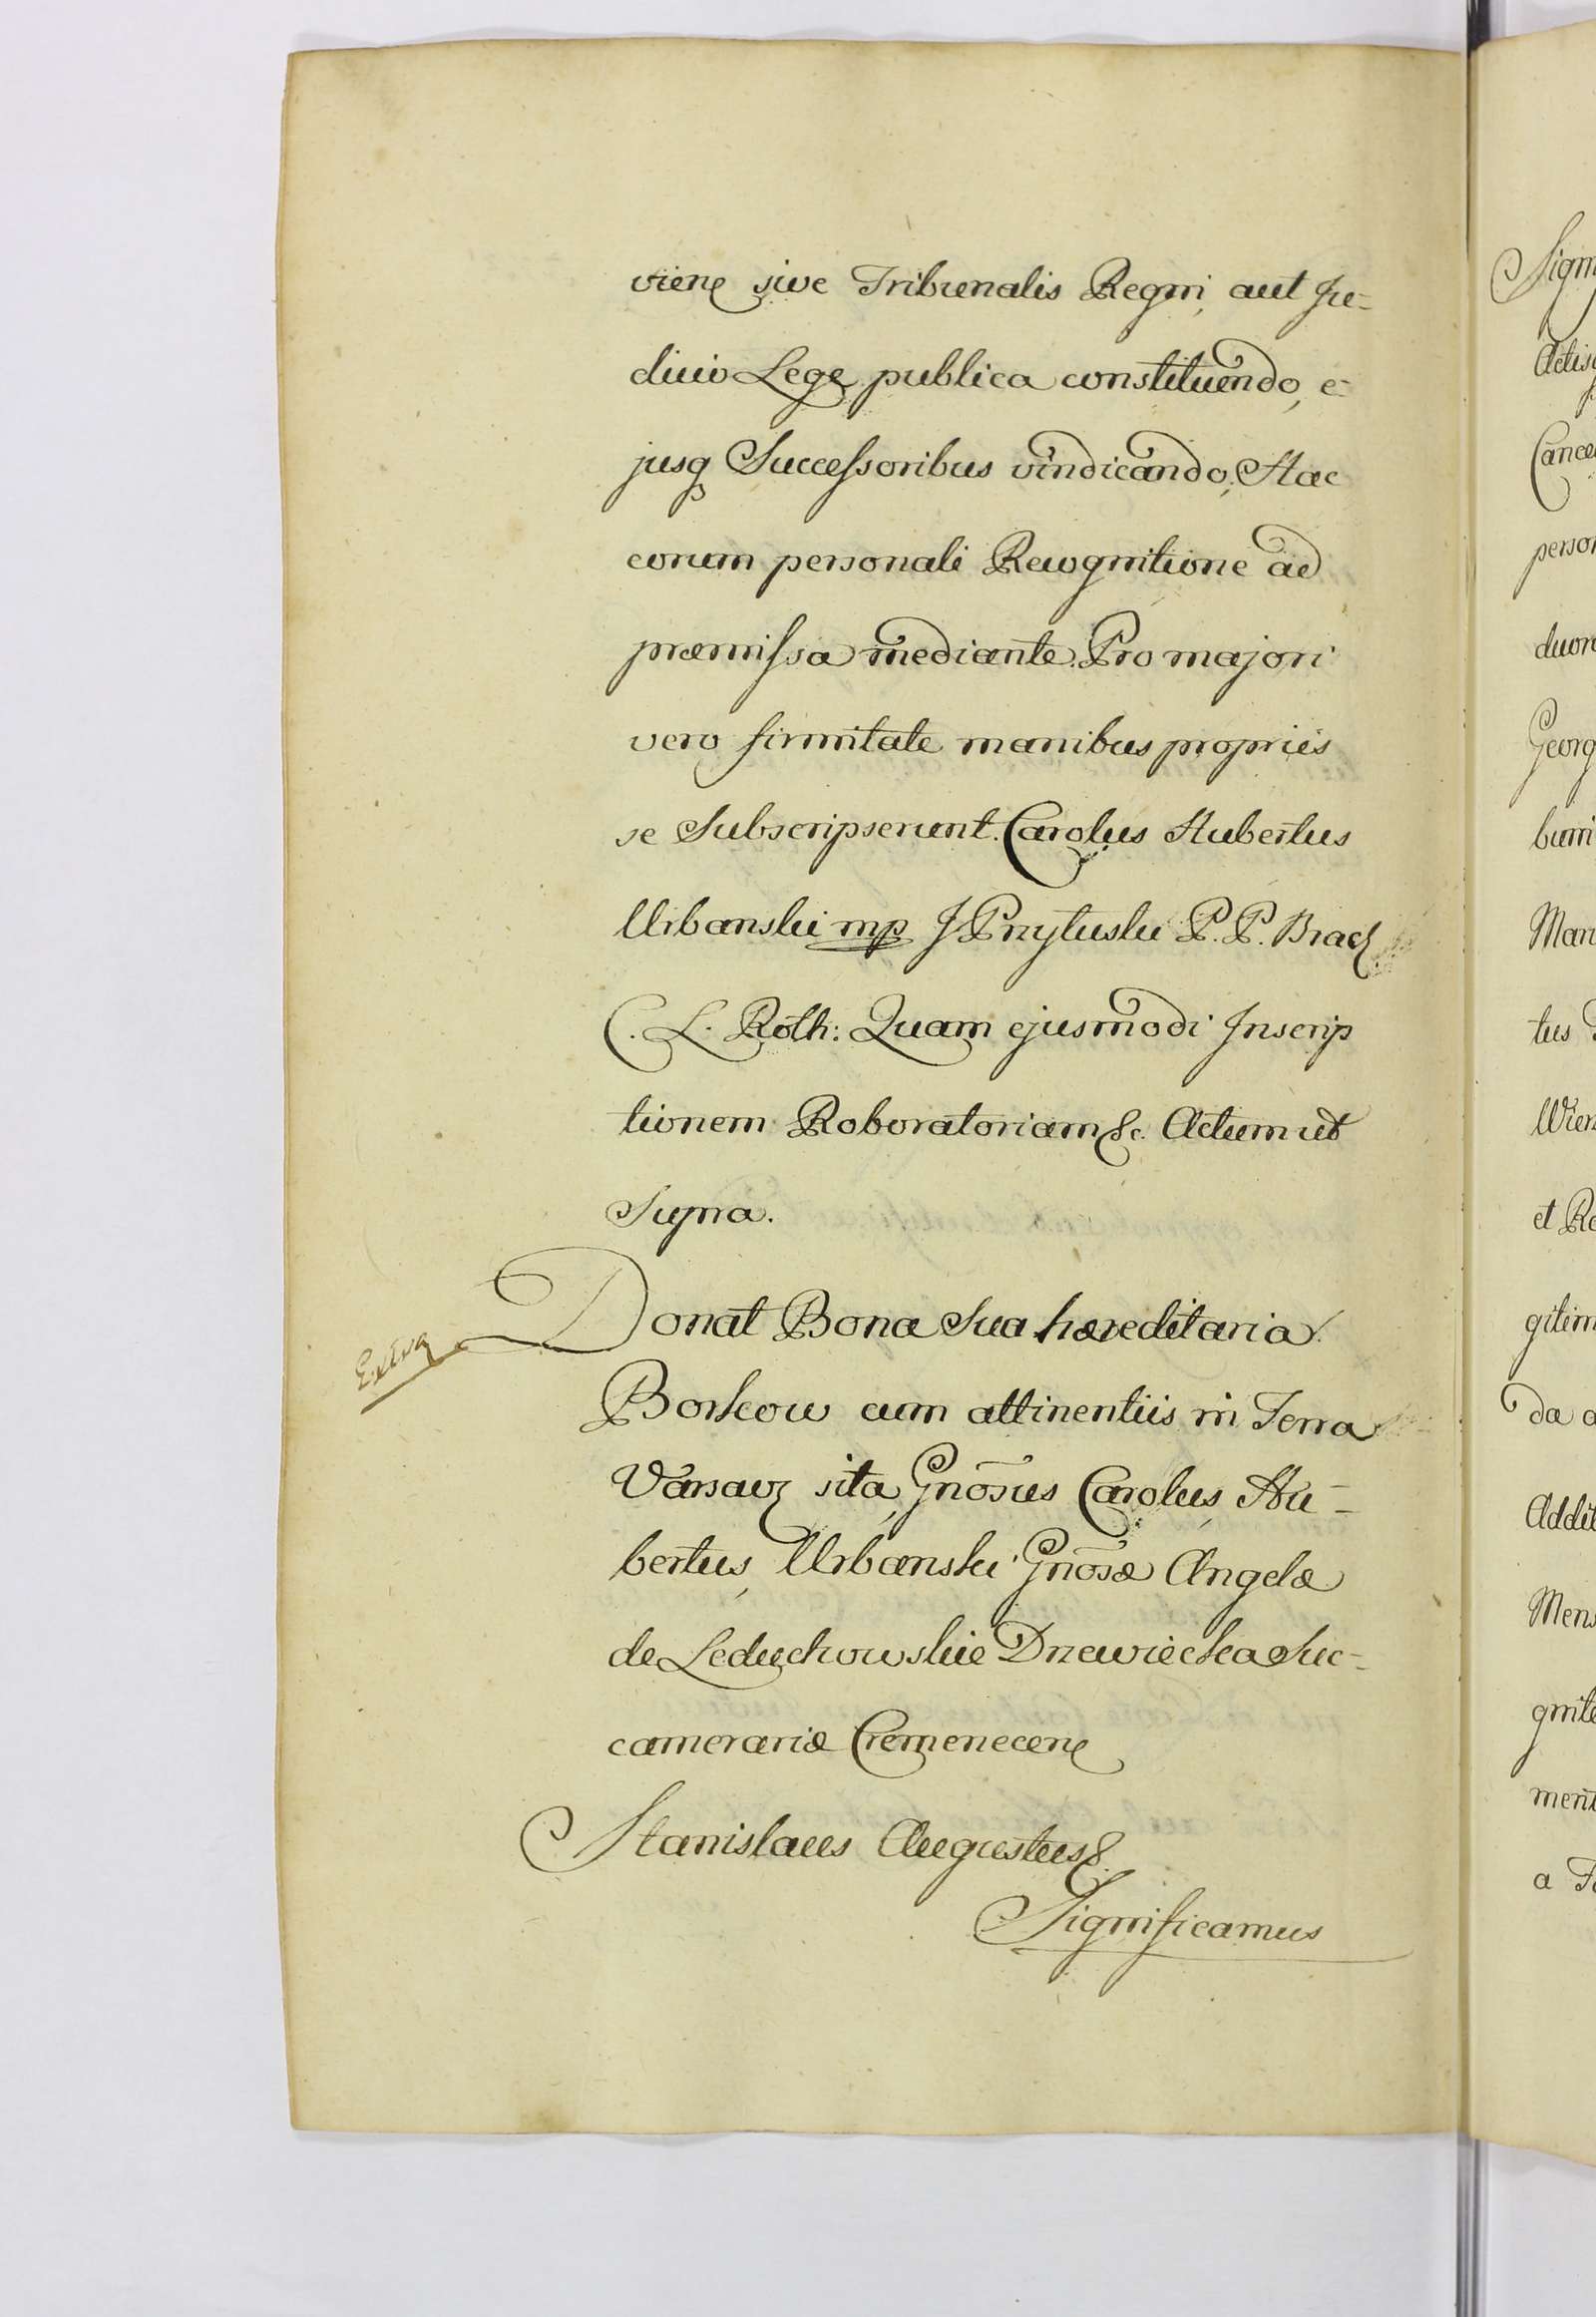 viene sive Tribunalis Regni, aut Ju-
dicio Lege publica constituendo, e-
jusq Successoribus vindicando; Hac
eorum personali Recognitione ad
præmissa mediante. Pro majori
vero firmitate manibus propriis
se Subscripserunt. Carolus Hubertus
Urbanski mp J Przyłuski P. P. Brac
C. L. Roth: Quam ejusmodi Inscrip
tionem Roboratoriam &c. Actum ut
Supra.
Extra
Donat Bona Sua hæreditaria
Borkow cum attinentiis in Terra
Varsav sita, Gnosus Carolus Hu-
bertus Urbanski Gnosæ Angelæ
de Leduchowskie Drzewiecka Suc-
camerariæ Cremenecen
Stanislaus Augustus &
Significamus
Sign
Actis
Cance
person
duor
Georg
bum
Man
tus
Wien
et Re
gitim
da a
Addit
Mens
gnite
ment
a